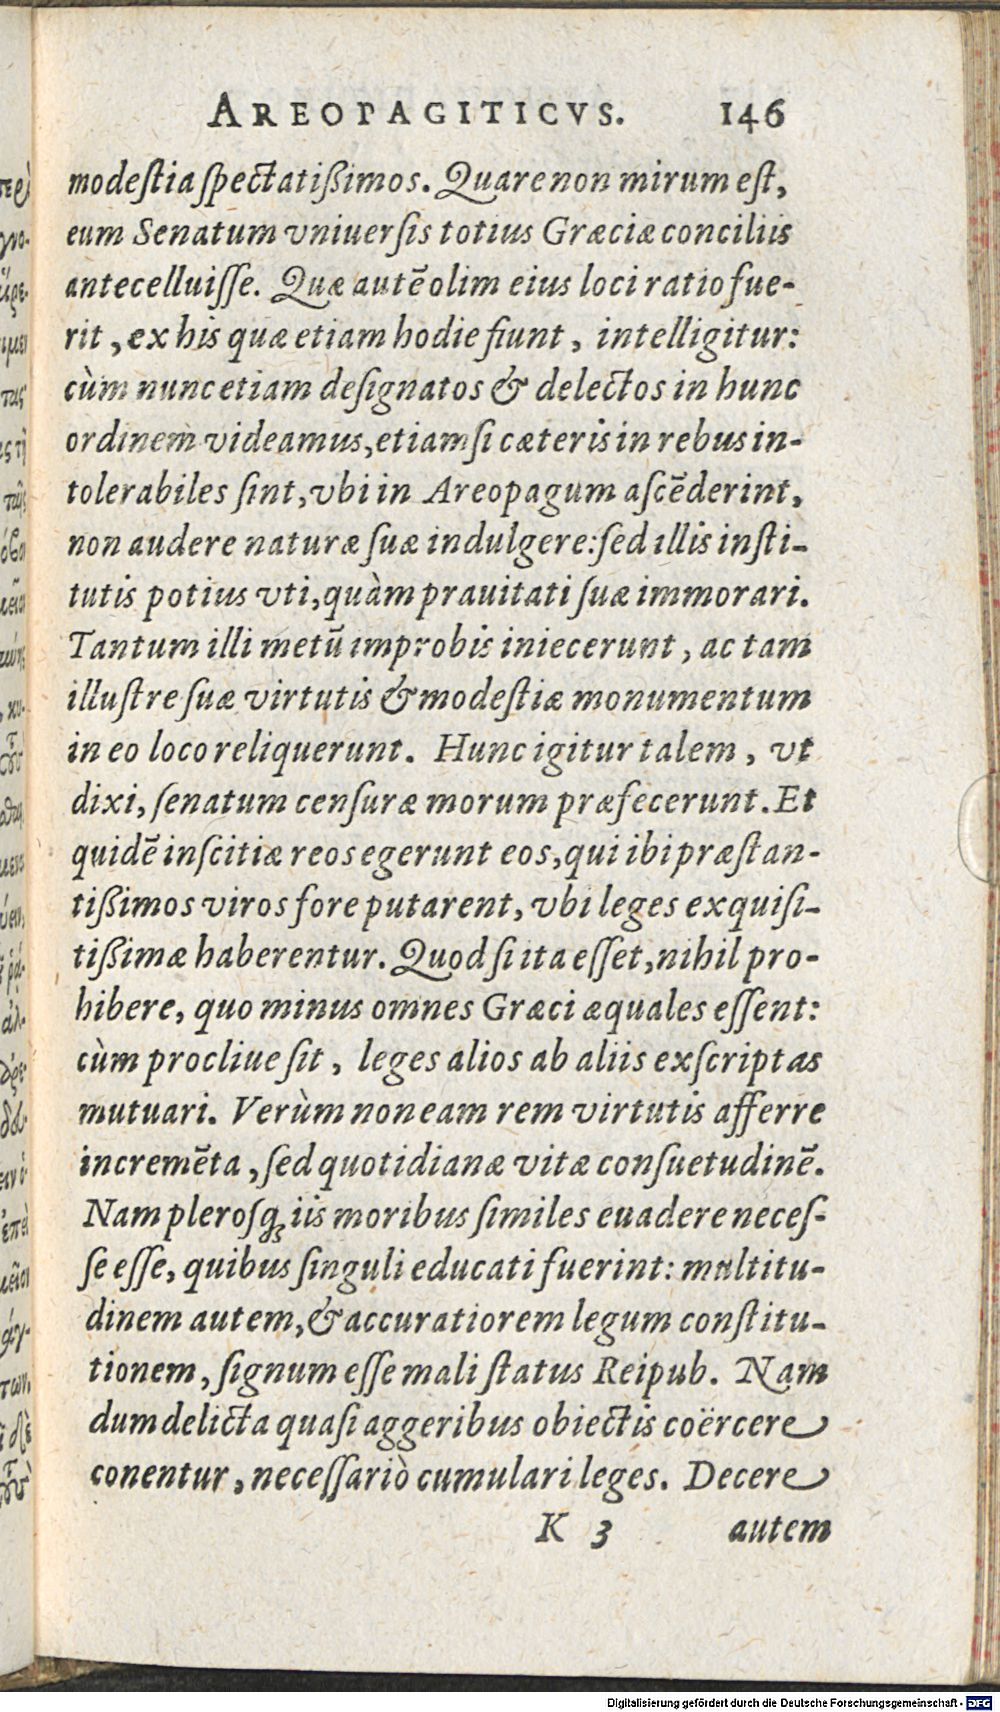 AREOPAGITICVS. 146
modestia spectatißimos. Quare non mirum est,
eum Senatum vniuersis totius Græciæ conciliis
antecelluisse. Quæ autē olim eius loci ratio fue-
rit, ex his quæ etiam hodie fiunt, intelligitur:
cùm nunc etiam designatos & delectos in hunc
ordinem videamus, etiamsi cæteris in rebus in-
tolerabiles sint, vbi in Areopagum ascēderint,
non audere naturæ suæ indulgere: sed illis insti-
tutis potius vti, quàm prauitati suæ immorari.
Tantum illi metū improbis iniecerunt, ac tam
illustre suæ virtutis & modestiæ monumentum
in eo loco reliquerunt. Hunc igitur talem, vt
dixi, senatum censuræ morum præfecerunt. Et
quidē inscitiæ reos egerunt eos, qui ibi præstan-
tißimos viros fore putarent, vbi leges exquisi-
tißimæ haberentur. Quod si ita esset, nihil pro-
hibere, quo minus omnes Græci æquales essent:
cùm procliue sit, leges alios ab aliis exscriptas
mutuari. Verùm non eam rem virtutis afferre
incremēta, sed quotidianæ vitæ consuetudinē.
Nam plerosq; iis moribus similes euadere neces-
se esse, quibus singuli educati fuerint: multitu-
dinem autem, & accuratiorem legum constitu-
tionem, signum esse mali status Reipub. Nam
dum delicta quasi aggeribus obiectis coërcere
conentur, necessariò cumulari leges. Decere
K 3 autem
Digitalisierung gefördert durch die Deutsche Forschungsgemeinschaft - DFG